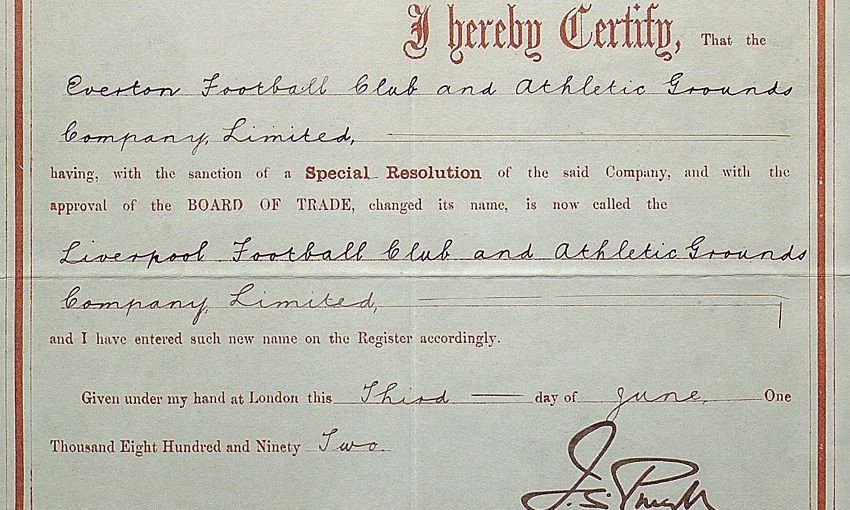 I hereby Certify, That the
Everton Football Club and Athletic Grounds
Company, Limited,
having, with the sanction of a Special Resolution of the said Company, and with the
approval of the BOARD OF TRADE, changed its name, is now called the
Liverpool Football Club and Athletic Grounds
Company, Limited,
and I have entered such new name on the Register accordingly.
Given under my hand at London this Third day of June, One
Thousand Eight Hundred and Ninety Two.
J.S.